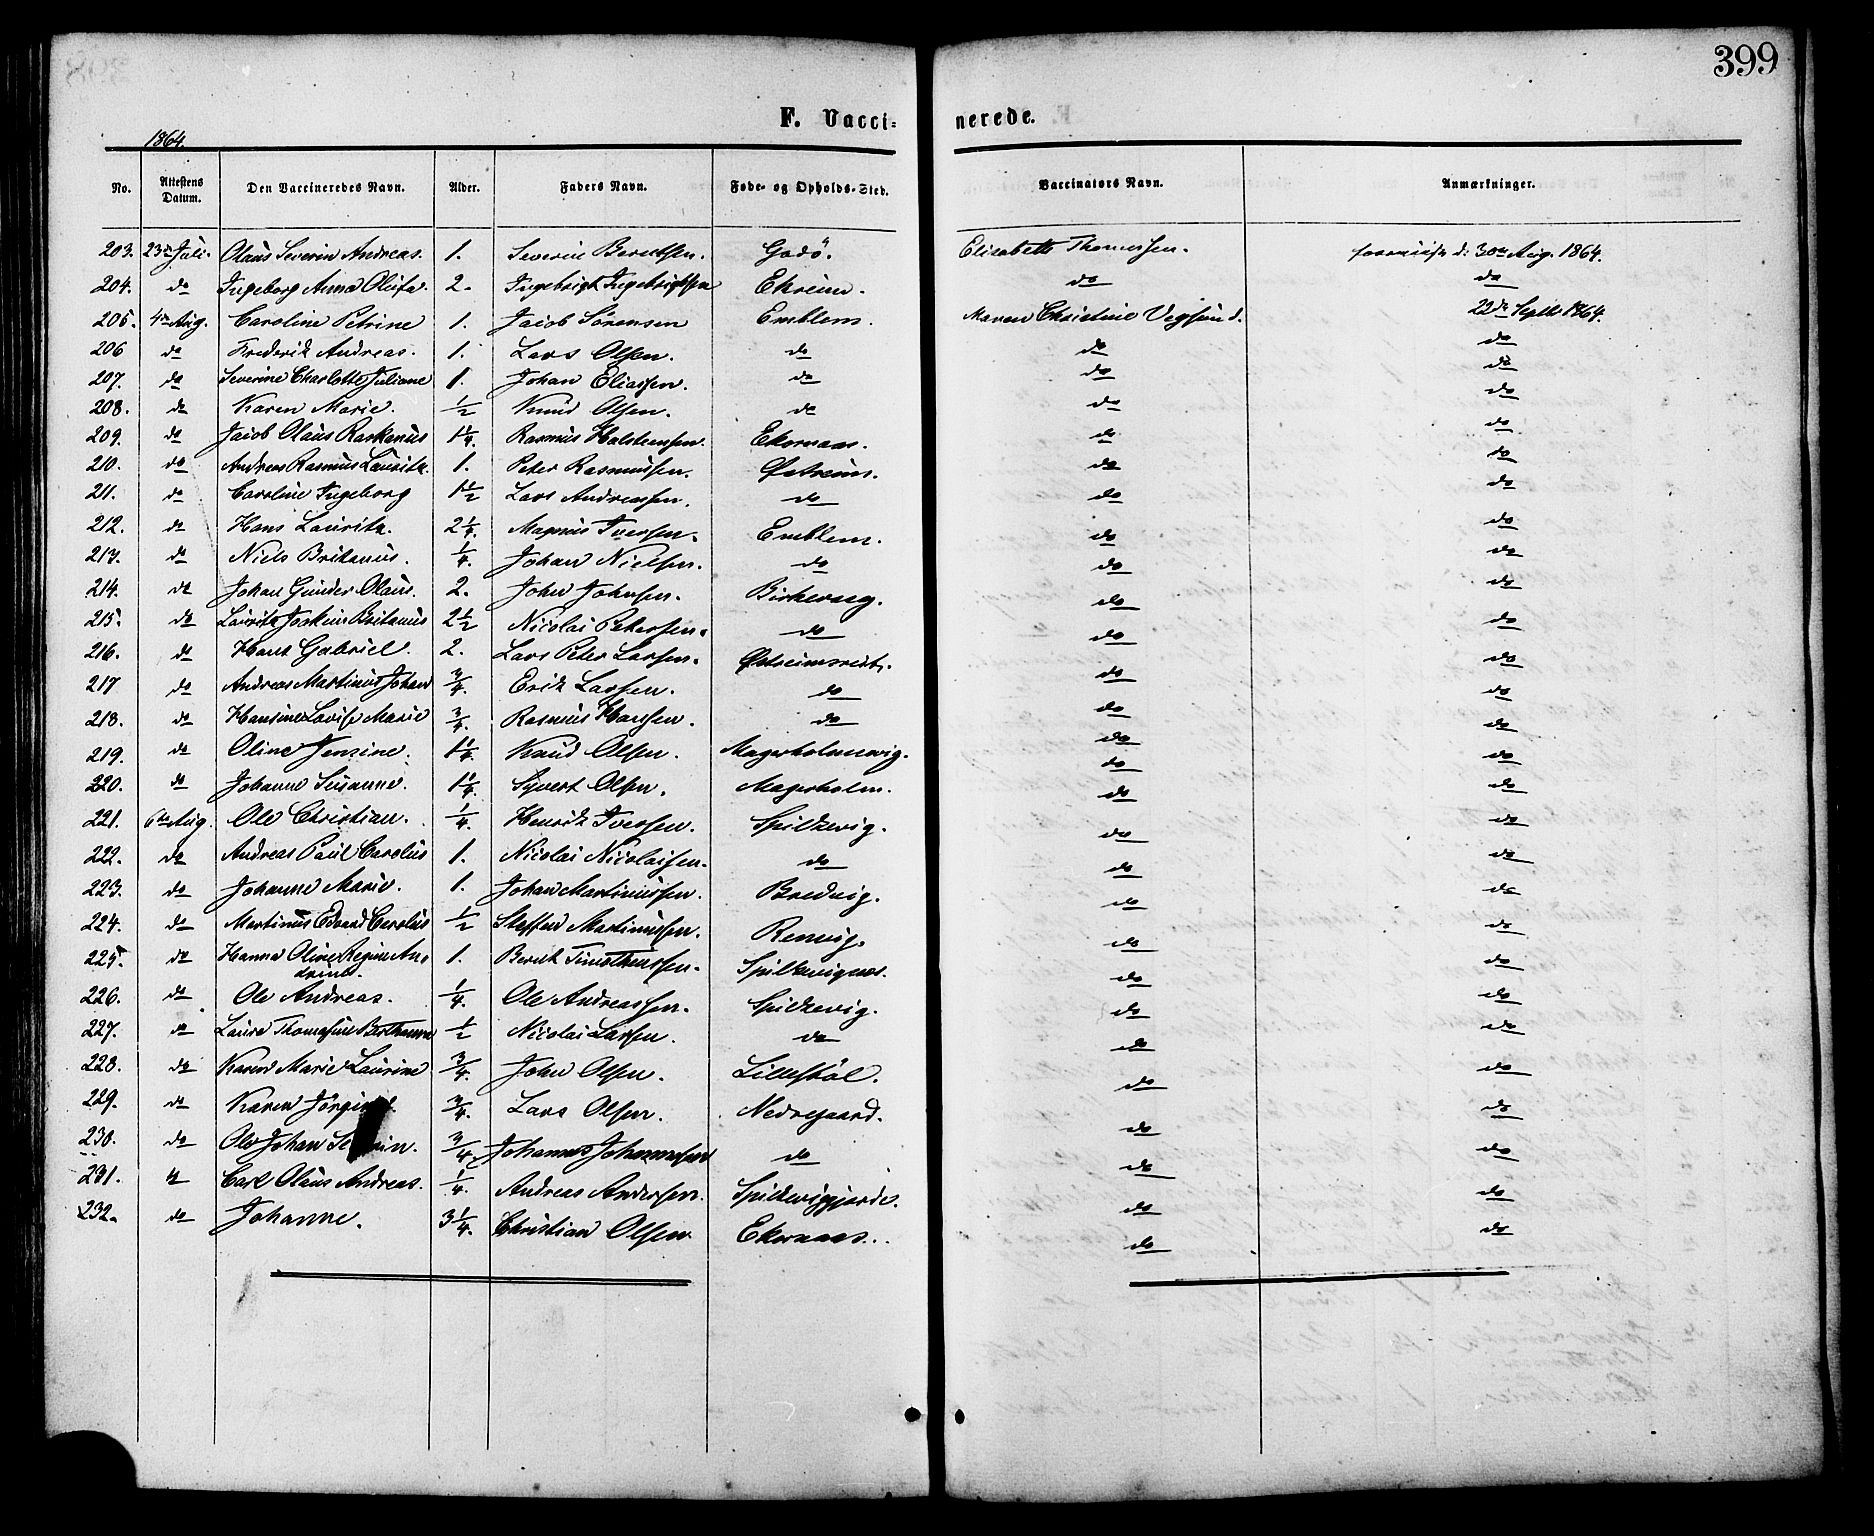 399
F. Vacci- nerede.
1864.
No. Attestens Datum. Den Vaccineredes Navn. Alder. Faders Navn. Føde- og Opholds-Sted. Vaccinators Navn. Anmærkninger.
203. 23de Juli. Olaus Severin Andreas. 1. Severin Berntsen. Godö. Elisabeth Thomessen. d: 30te Aug. 1864.
204. do Ingeborg Anna Olufa. 2. Ingebrigt Ingebrigtsen do do
205. 4de Aug. Caroline Petrine 1. Jacob Sörensen Emblem. Maren Christine Vegsund. 22de Septb 1864.
206 do Frederik Andreas. 1. Lars Olsen. do do do
207. do Severine Charlotte Juliane 1. Johan Eliassen. do do do
208. do Karen Marie. 1/2 Knud Olsen. do do do
209. do Jacob Olaus 1 1/4. Rasmus Halstensen. Ekornaas. do do
210. do Andreas Rasmus Lauritz. 1. Peter Rasmussen. Østreim. do do
211. do Caroline Ingeborg 1 1/2 Lars Andreassen. do do do
212. do Hans Lauritz. 2 1/4. Magnus Iversen. Emblem. do do
213. do Niels Britanus. 1/4. Johan Nielsen. do do do
214. do Johan Gunder Olaus. 2. John Johnsen. do do
215. do Lauritz Joakim Britanus 2 1/2 Nicolai Petersen. do do do
216. do Hans Gabriel. 2. Lars Peter Larsen. do do
217 do Andreas Martinus Johan 3/4. Erik Larsen. do do do
218. do Hansine Lovise Marie 3/4. Rasmus Hansen. do do do
219. do Oline Jensine. 1 1/4. Knud Olsen. Magerholmsvig. do do
220. do Johanne Susanne. 1 1/4. Syvert Olsen. Magerholm. do do
221. 6te Aug. Ole Christian. 1/4. Henrik Iversen. Spilkevig. do do
222. do Andreas Paul Carolus 1. Nicolai Nicolaisen. do do do
223. do Johanne Marie. 1. Johan Martinussen. Bredvig. do do
224. do Martinus Edvard Carolus 1/2 Steffen Martinussen. Renvig. do do
225. do Hanna Oline Regine An- 1. Bernt Timotheussen. Spilkevignes. do do
drine.
226. do Ole Andreas. 1/4. Ole Andreassen. Spilkevig. do do
227. do Laura Thomasine Berthanna 1/2 Nicolai Larsen. do do do
228. do Karen Marie Laurine 3/4. John Olsen. do do
229. do Karen Jörgine. 3/4. Lars Olsen. Nedregaard. do do
230. do Ole Johan Severin. 3/4. Johannes Johannessen do do do
231. Carl Olaus Andreas. 1/4. Andreas Andersen. Spilkeviggjerde. do do
232. do Johanne. 3 1/4. Christian Olsen Ekornaas. do do